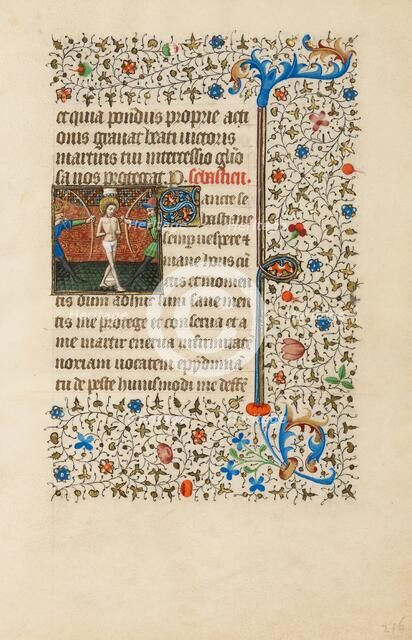 et quia pondus proprie acti
onis gravat beati victoris
martiris tui intercessio glo
sa nos protegat. D. sebastien.
Sancte se
bastiane
semper vespere et
mane horis cū
ctis et momen
tis dum adhuc sum sane men
tis me protege et conserva et a
me martir enerva infirmitatē
noxiam vocatem epydimiā
tu de peste huiusmodi me deffē
216